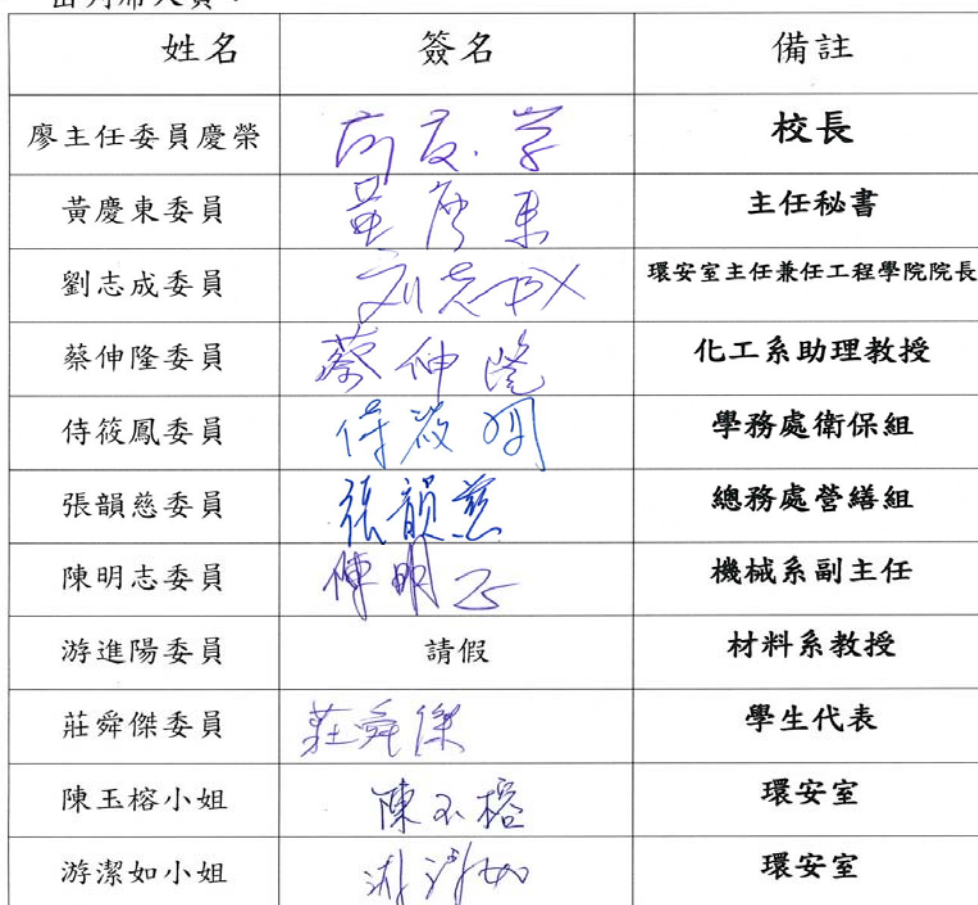 出列席人員：
姓名 簽名 備註
廖主任委員慶榮 校長
黃慶東委員 黃慶東 主任秘書
劉志成委員 刘志成 環安室主任兼任工程學院院長
蔡伸隆委員 蔡伸隆 化工系助理教授
侍筱鳳委員 侍筱 學務處衛保組
張韻慈委員 張韻慈 總務處營繕組
陳明志委員 陳明志 機械系副主任
游進陽委員 請假 材料系教授
莊舜傑委員 莊舜傑 學生代表
陳玉榕小姐 陳玉榕 環安室
游潔如小姐 游潔如 環安室